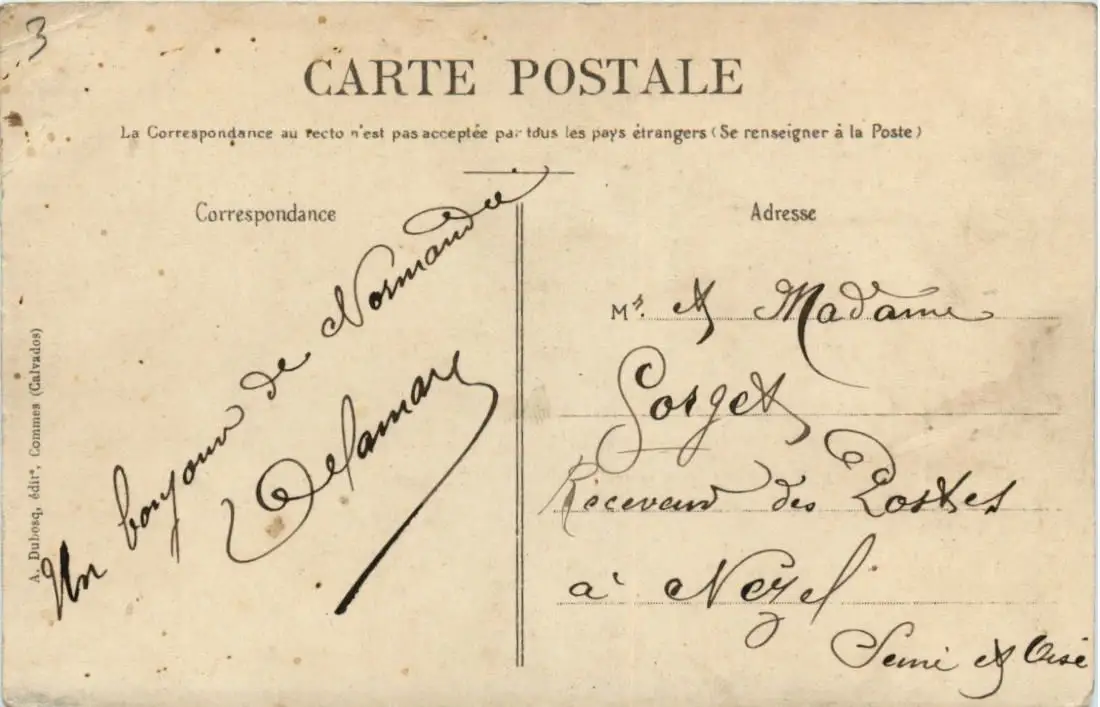 3
CARTE POSTALE
La Correspondance au recto n'est pas acceptée par tous les pays étrangers (Se renseigner à la Poste)
Correspondance
Un bonjour de Normandie
Delamare
A. Dubosq, édirᵗ, Commes (Calvados)
Adresse
Mʳ. et Madame
Gorget
Receveur des Postes
à Nézel
Seine et Oise